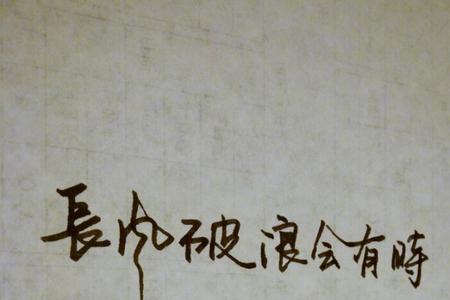 長风破浪会有時